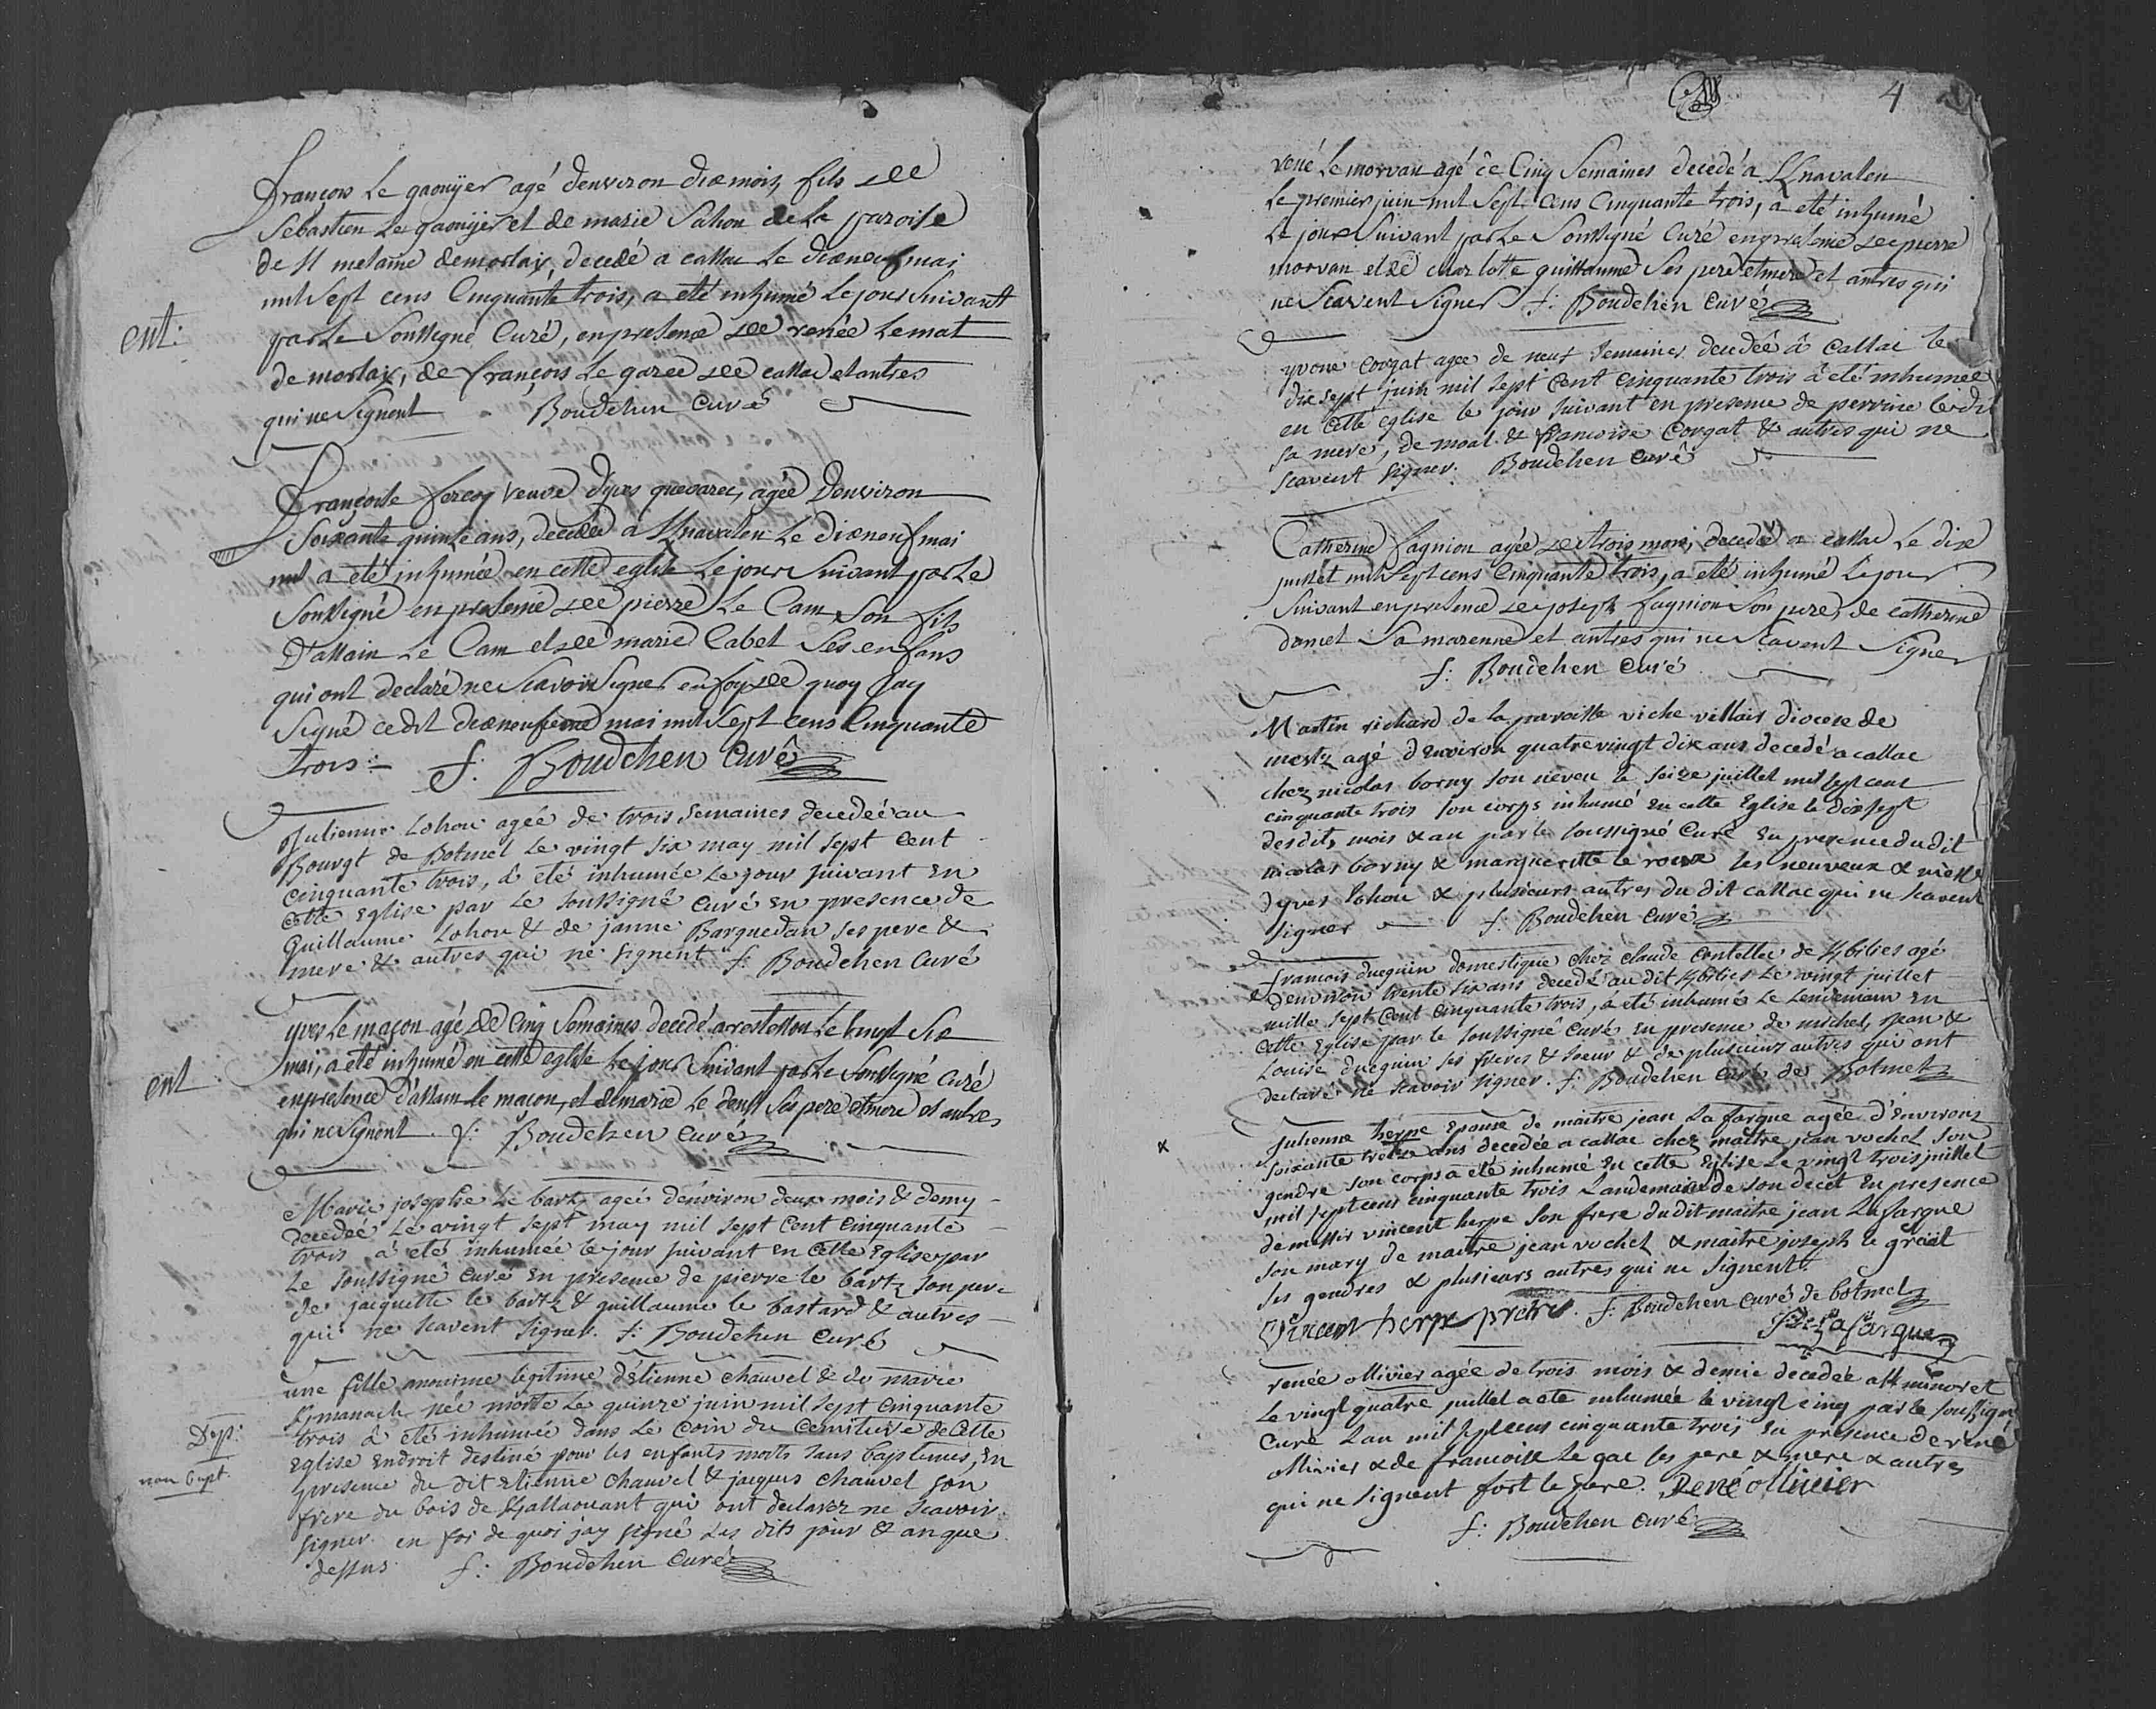 françois Le gaouyer agé denviron dix mois, fils de
Sebastien Le gaouyer et de marie Salion de La paroisse
de St melaine demorlaix, decedé a callac Le dixneuf mai
mil Sept cens Cinquante trois, a eté inhumé Le jour Suivant
ent:
par Le Soussigné Curé, en presence de renée Lemat
de morlaix, de françois Le garec de callac et autres
qui ne Signent Boudehen Curé
françoise fercoq veuve dyves quevarec, agée Denviron
Soixante quinze ans, decedée a Knavalen Le dixneuf mai
mil a été inhumée en cette eglise Le jour Suivant par Le
Soussigné en presence de pierre Le Cam Son fils
D'allain Le Cam et de marie Cabel Ses enfans
qui ont declaré ne Scavoir Signer en foy de quoy Jay
Signé cedit dixneufieme mai mil Sept cens Cinquante
trois :- f: Boudehen Curé
Julienne Lohou agée de trois Semaines decedée au
Bourgt de Botmel Le vingt six may mil sept Cent
cinquante trois, à eté inhumée Le jour suivant en
cette Eglise par Le soussigné Curé en presence de
Guillaume Lohou & de janne Barguedan ses pere &
mere & autres qui ne signent f: Boudehen Curé
yves Le maçon agé de Cinq Semaines decedé a restellou Le vingt Six
mai, a eté inhumé en cette eglise Le jour Suivant par Le Soussigné Curé
ent
en presence d'allain Le maçon, et de marie Le deuff Ses pere et mere et autres
qui ne Signent. f: Boudehen Curé
Marie josephe Le bartz agée denviron deux mois & demy
decedée Le vingt sept may mil sept Cent cinquante
trois à eté inhumée le jour suivant en cette Eglise par
Le soussigné Curé en presence de pierre le bartz son pere
de jacquette le bartz & guillaume le bastard & autres
qui ne scavent signer. f: Boudehen Curé
une fille annonime legitime d'étienne chauvel & de marie
Kmanach née morte Le quinze juin mil sept cinquante
trois à eté inhumée dans Le coin du Cemitiere de Cette
Dept:
Eglise Endroit destiné pour les enfants morts sans baptemes, En
non bapt.
presence du dit Etienne Chauvel & jacques chauvel son
frere du bois de Kallaouant qui ont declarez ne scavoir
signer. en foi de quoi jay signé Les dits jour & an que
dessus f: Boudehen Curé
4
rené Le morvan agé de Cinq Semaines decedé a Knavalen
Le premier juin mil Sept Cens Cinquante trois, a eté inhumé
Le jour Suivant par Le Soussigné Curé en presence de pierre
morvan et de charlotte guillaume Ses pere et mere et autres qui
ne Scavent Signer f: Boudehen Curé
yvone Corgat agee de neuf Semaines decedée à Callac le
dix sept juin mil sept Cent cinquante trois à eté inhumée
en cette eglise le jour suivant en presence de perrine
sa mere, de moal & francoise Corgat & autres qui ne
scavent signer. Boudehen Curé
Catherine fagnion agée de trois mois, decedé a callac Le dix
juillet mil Sept cens Cinquante trois, a eté inhumé Le jour
Suivant en presence de joseph fagnion Son pere, de Catherine
damet Sa marenne et autres qui ne Scavent Signer
f: Boudehen Curé
Martin richard de la paroisse viche villais diocese de
mestz agé d'Environ quatre vingt dix ans decedé a callac
chez nicolas borny son neveu le seize juillet mil sept cent
cinquante trois son corps inhumé en cette Eglise le dix sept
desdits mois & an par le soussigné Curé En presence du dit
nicolas borny & marguerite le roux ses neuveux & niesse
dyves Lohou & plusieurs autres du dit callac qui ne scavent
signer f: Boudehen Curé
francois dueguin domestique chez claude Contellec de Kbilies agé
denviron trente six ans decedé au dit Kbilies Le vingt juillet
mille sept Cent Cinquante trois, à eté inhumé Le Lendemain En
cette Eglise par le soussigné Curé En presence de michel, jean &
Louise dueguin ses freres & soeur & de plusieurs autres qui ont
declaré ne scavoir signer. f: Boudehen Curé de Botmel
x
julienne herpe Epouse de maitre jean La fargue agée d'Environs
soixante treize ans decedée a callac chez maitre jean vochel son
gendre son corps a été inhumé En cette Eglise Le vingt trois juillet
mil sept cens cinquante trois Landemain de son decet En presence
de missir vincent herpe son frere du dit maitre jean La fargue
son mary de maitre jean vochel & maitre joseph le gréal
ses gendres & plusieurs autres qui ne signent
Vincent herpe pretre. f: Boudehen Curé de botmel
De Lafargue
renée ollivier agée de trois mois & demie decedée a Kminoret
Le vingt quatre juillet a ete inhumée le vingt cinq par le soussigné
Curé Lan mil sept cens cinquante trois En presence de rené
ollivier & de francoise Le gac ses pere & mere & autres
qui ne signent fort le pere. René ollivier
f: Boudehen Curé